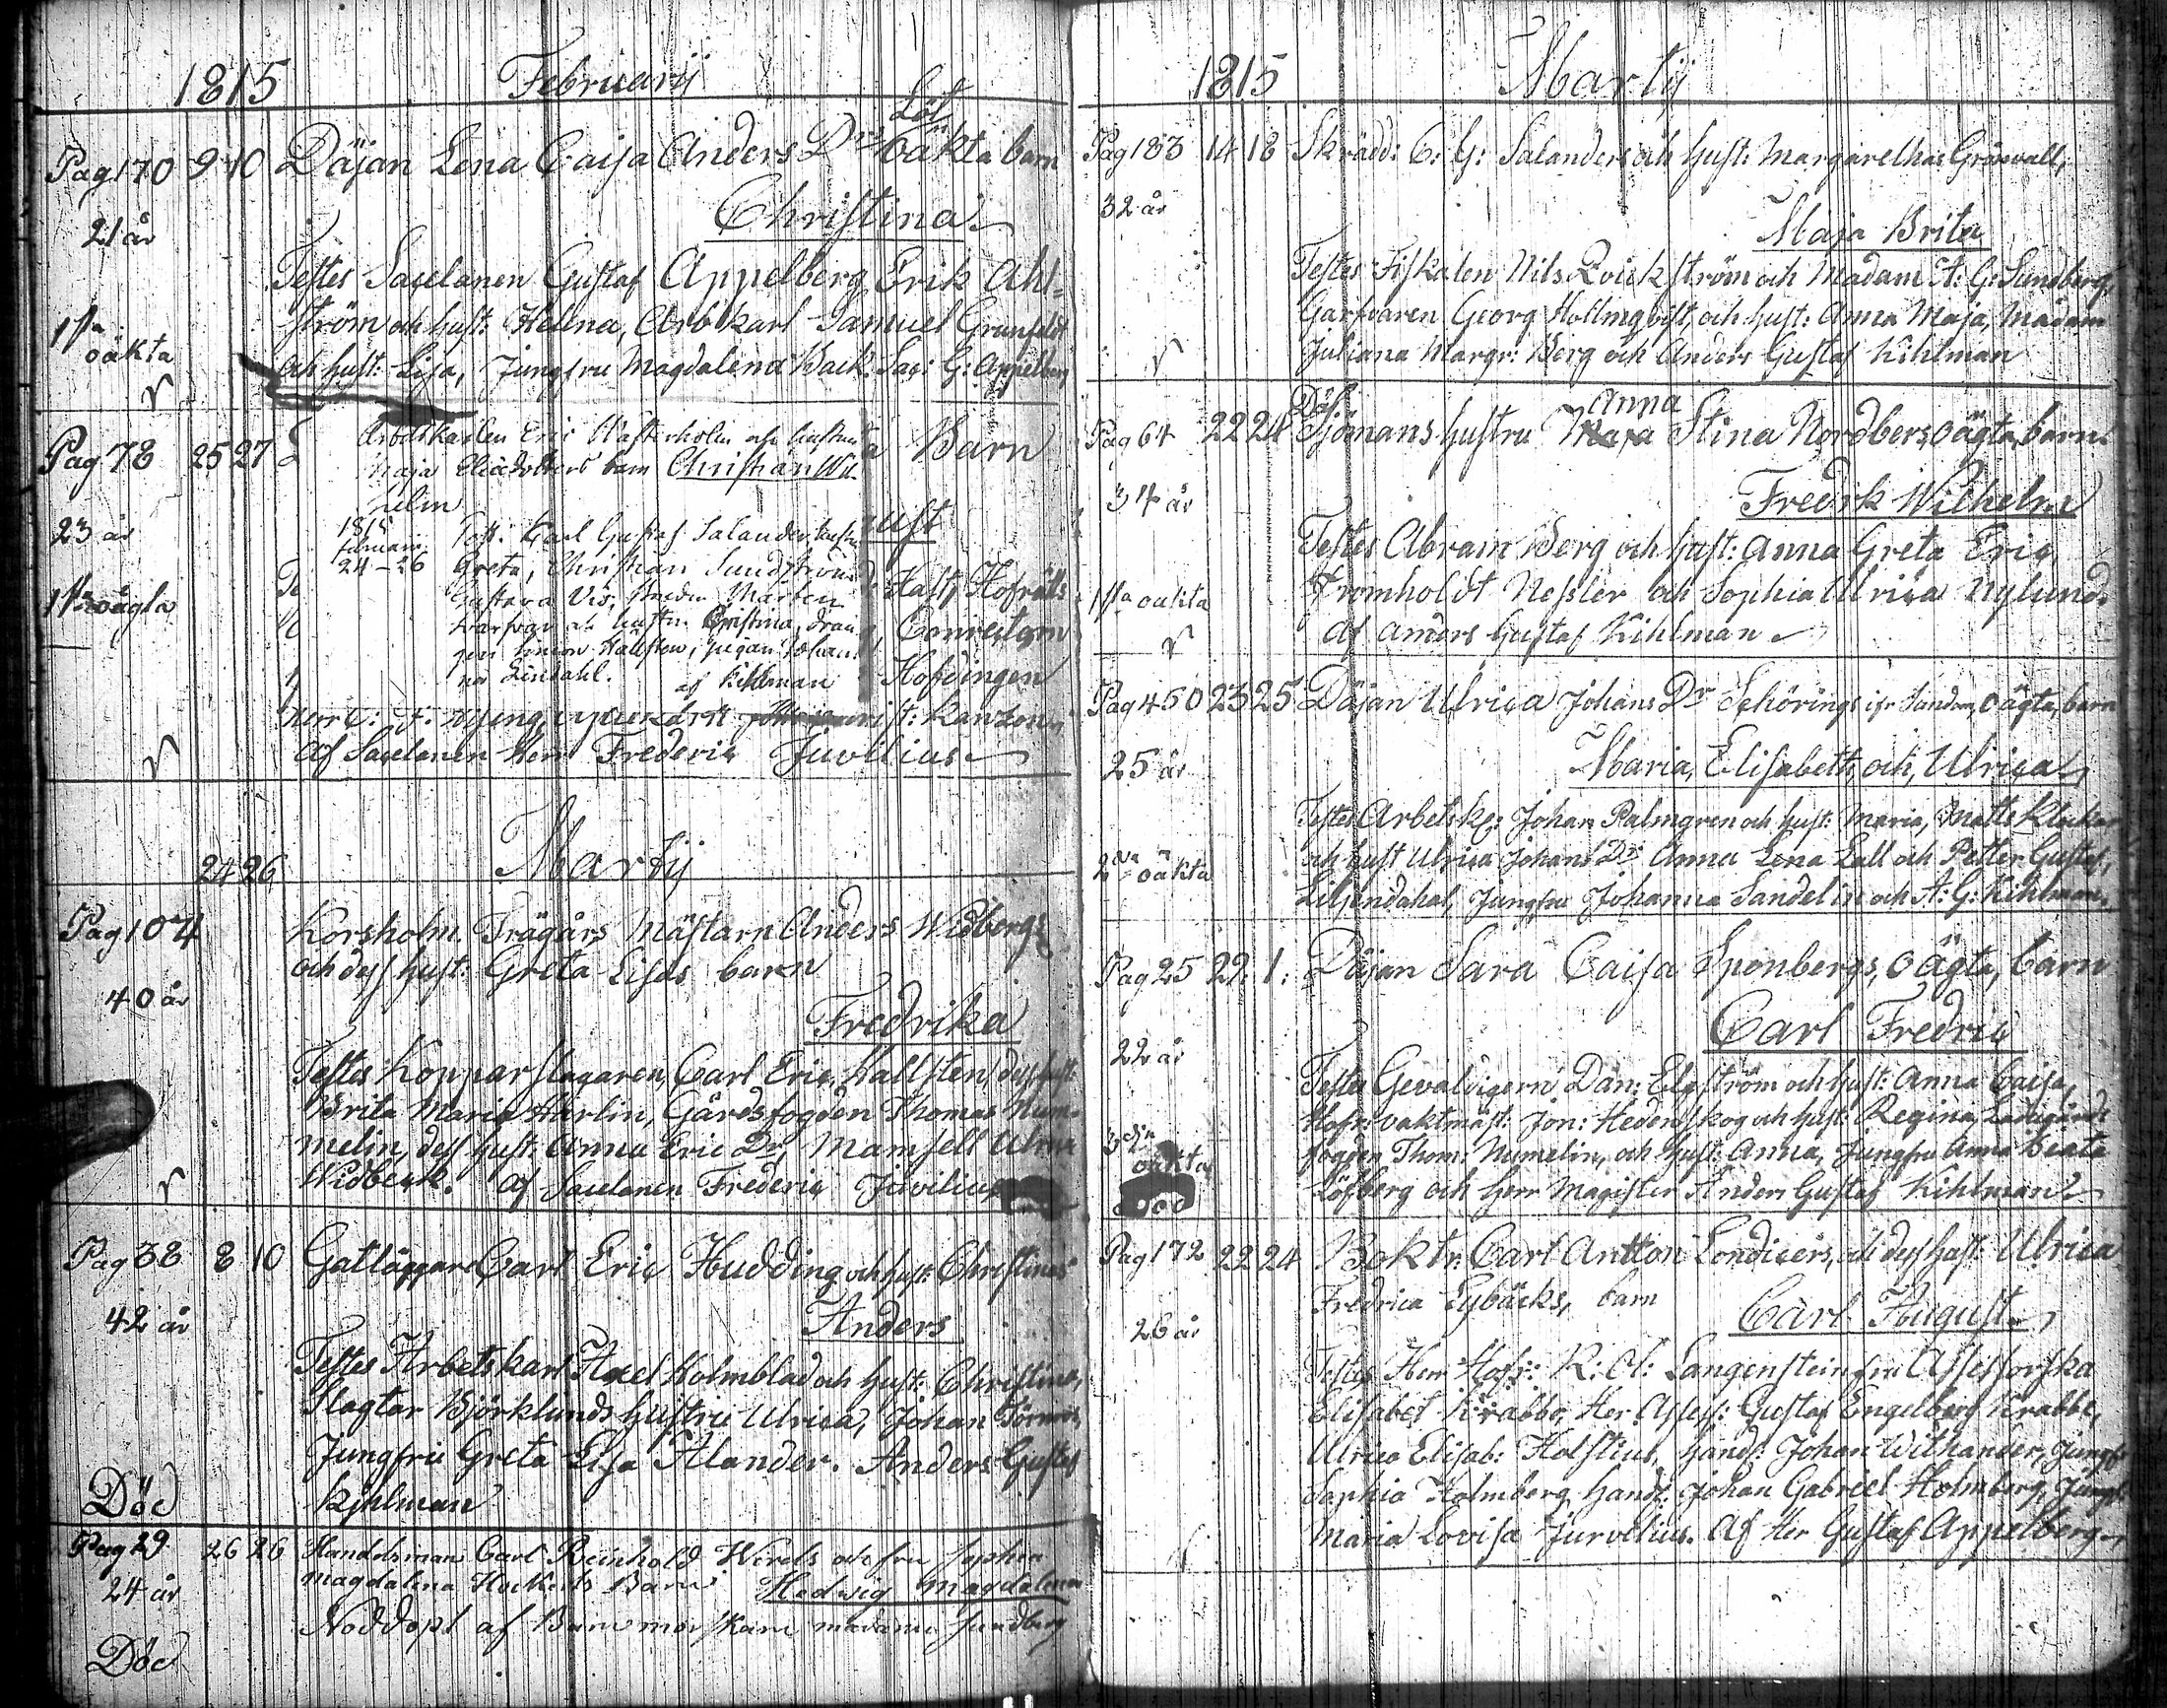 1815 Februarij
Löt
Pag 170 9 10 Däjan Lena Caisa Anders Drs oäkta barn
21 år
Christina
Testes Sacelanen Gustaf Appelberg Erik Ahl-
ström och hust: Helena, Arb karl Samuel Grunfeldt
1sta oäkta
och hust: Lisa, Jungfru Magdalena Back. Sac: G: Appelberg
Pag 78 25 27
Arbetskarlen Eric Westerholm och hustru
Maja Elisedotters barn Christian Wil-
helm
a Barn
23 år
1815
februari
24-26
Test. Karl Gustaf Salander, hustru
Greta, Christian Sundström
Gustava
Mårten
och hustru Christina, drän-
gen Simon Hällsten, pigan Johan-
na Lindahl. af Kihlman
ust
Hast, Hofrätts
Hofdingen
1sta oägta
Herr C: F:
Af Sacelanen Herr Frederic Juvelius
Martij
24 26
Pag 104
Korsholm. Trägårs Mästarn Anders Widbergs
och dess hust: Greta Lisas barn
40 år
Fredrika
Testes Kopparslagaren, Carl Eric Hallsten, dess hust
Brita Maria Harlin, Gårdsfogden Thomas Num-
melin, dess hust: Anna Eric Dr, Mamsell Ulrica
Widbeck. af Sacelanen Frederic Juvilius
Pag 38 8 10 Gatläggare Carl Eric Hudding och hust: Christinas
42 år
Anders
Testes Arbetskarl Axel Holmblad och hust: Christina,
Slagtar Björklunds hustru Ulrica, Johan Törnros,
Jungfru Greta Lisa Alander. Anders Gustaf
Kihlman
Död
Pag 29 26 26 Handelsman Carl Reinhold Wirels och fru Sophia
24 år
Magdalena Huckerts Barn Hedwig Magdalena
Nöddöpt af Barnmorskan madame Sundberg
Död
1815 Martij
Pag 183 14 18 Skrädd: C: G: Salanders och hust: Margaretha Gräsvall,
32 år
Maja Brita
Testes Fiskalen Nils Qvickström och Madam A: G: Sundberg,
Garfvaren Georg Hollmqvist, och hust: Anna Maja, Madam
Juliana Margr: Berg och Anders Gustaf Kihlman
Döf
Anna
Pag 64 22 24 Sjömans hustru Maja Stina Nordbergs oägta barn
34 år
Fredrik Wilhelm
Testes Abram Berg och hust: Anna Greta Eric,
1sta oäkta
Fromholdt Nessler och Sophia Ulrica Nylund,
Af Anders Gustaf Kihlman
Pag 450 23 25 Däjan Ulrica Johans Dr Schörings ifr Sundom, oägta, barn
25 år
Maria, Elisabeth, och, Ulrica
Testes Arbetsk: Johan Palmgren och hust: Maria, Matts Klockar
2dra oäkta
och hust Ulrica Johans Dr Anna Lena Lall och Petter Gustaf,
Liljendahal, Jungfru Johanna Sandelin och A: G: Kihlman.
Pag 25 29. 1. Däjan Sara Caisa Sponbergs, oägta, barn
22 år
Carl Fredric
Testes Gevaldigern Dan: Elgström och hust: Anna Caisa,
Hofr: vaktmäst: Jon: Hedenskog och hust: Regina, Ladugårds
3dje oäkta
fogden Thom: Numelin, och hust: Anna, Jungfru Anna Beata
död
Löfberg och Herr Magister Anders Gustaf Kihlman
Pag 172 22 24 Boktr. Carl Antton Londicers, och dess hust: Ulrica
Fredrica Eybäcks, barn
26 år
Carl August
Testes Herr Hofr: K: A: Langenstein, fru Assessorska
Elisabet Krabbe, Her Assess: Gustaf Engelberg Krabbe,
Ulrica Elisab: Holstius, Handl: Johan Withander, Jungf
Sophia Holmberg, Handl: Johan Gabriel Holmberg, Jungf
Maria Lovisa Jurvelius. Af Her Gustaf Appelberg